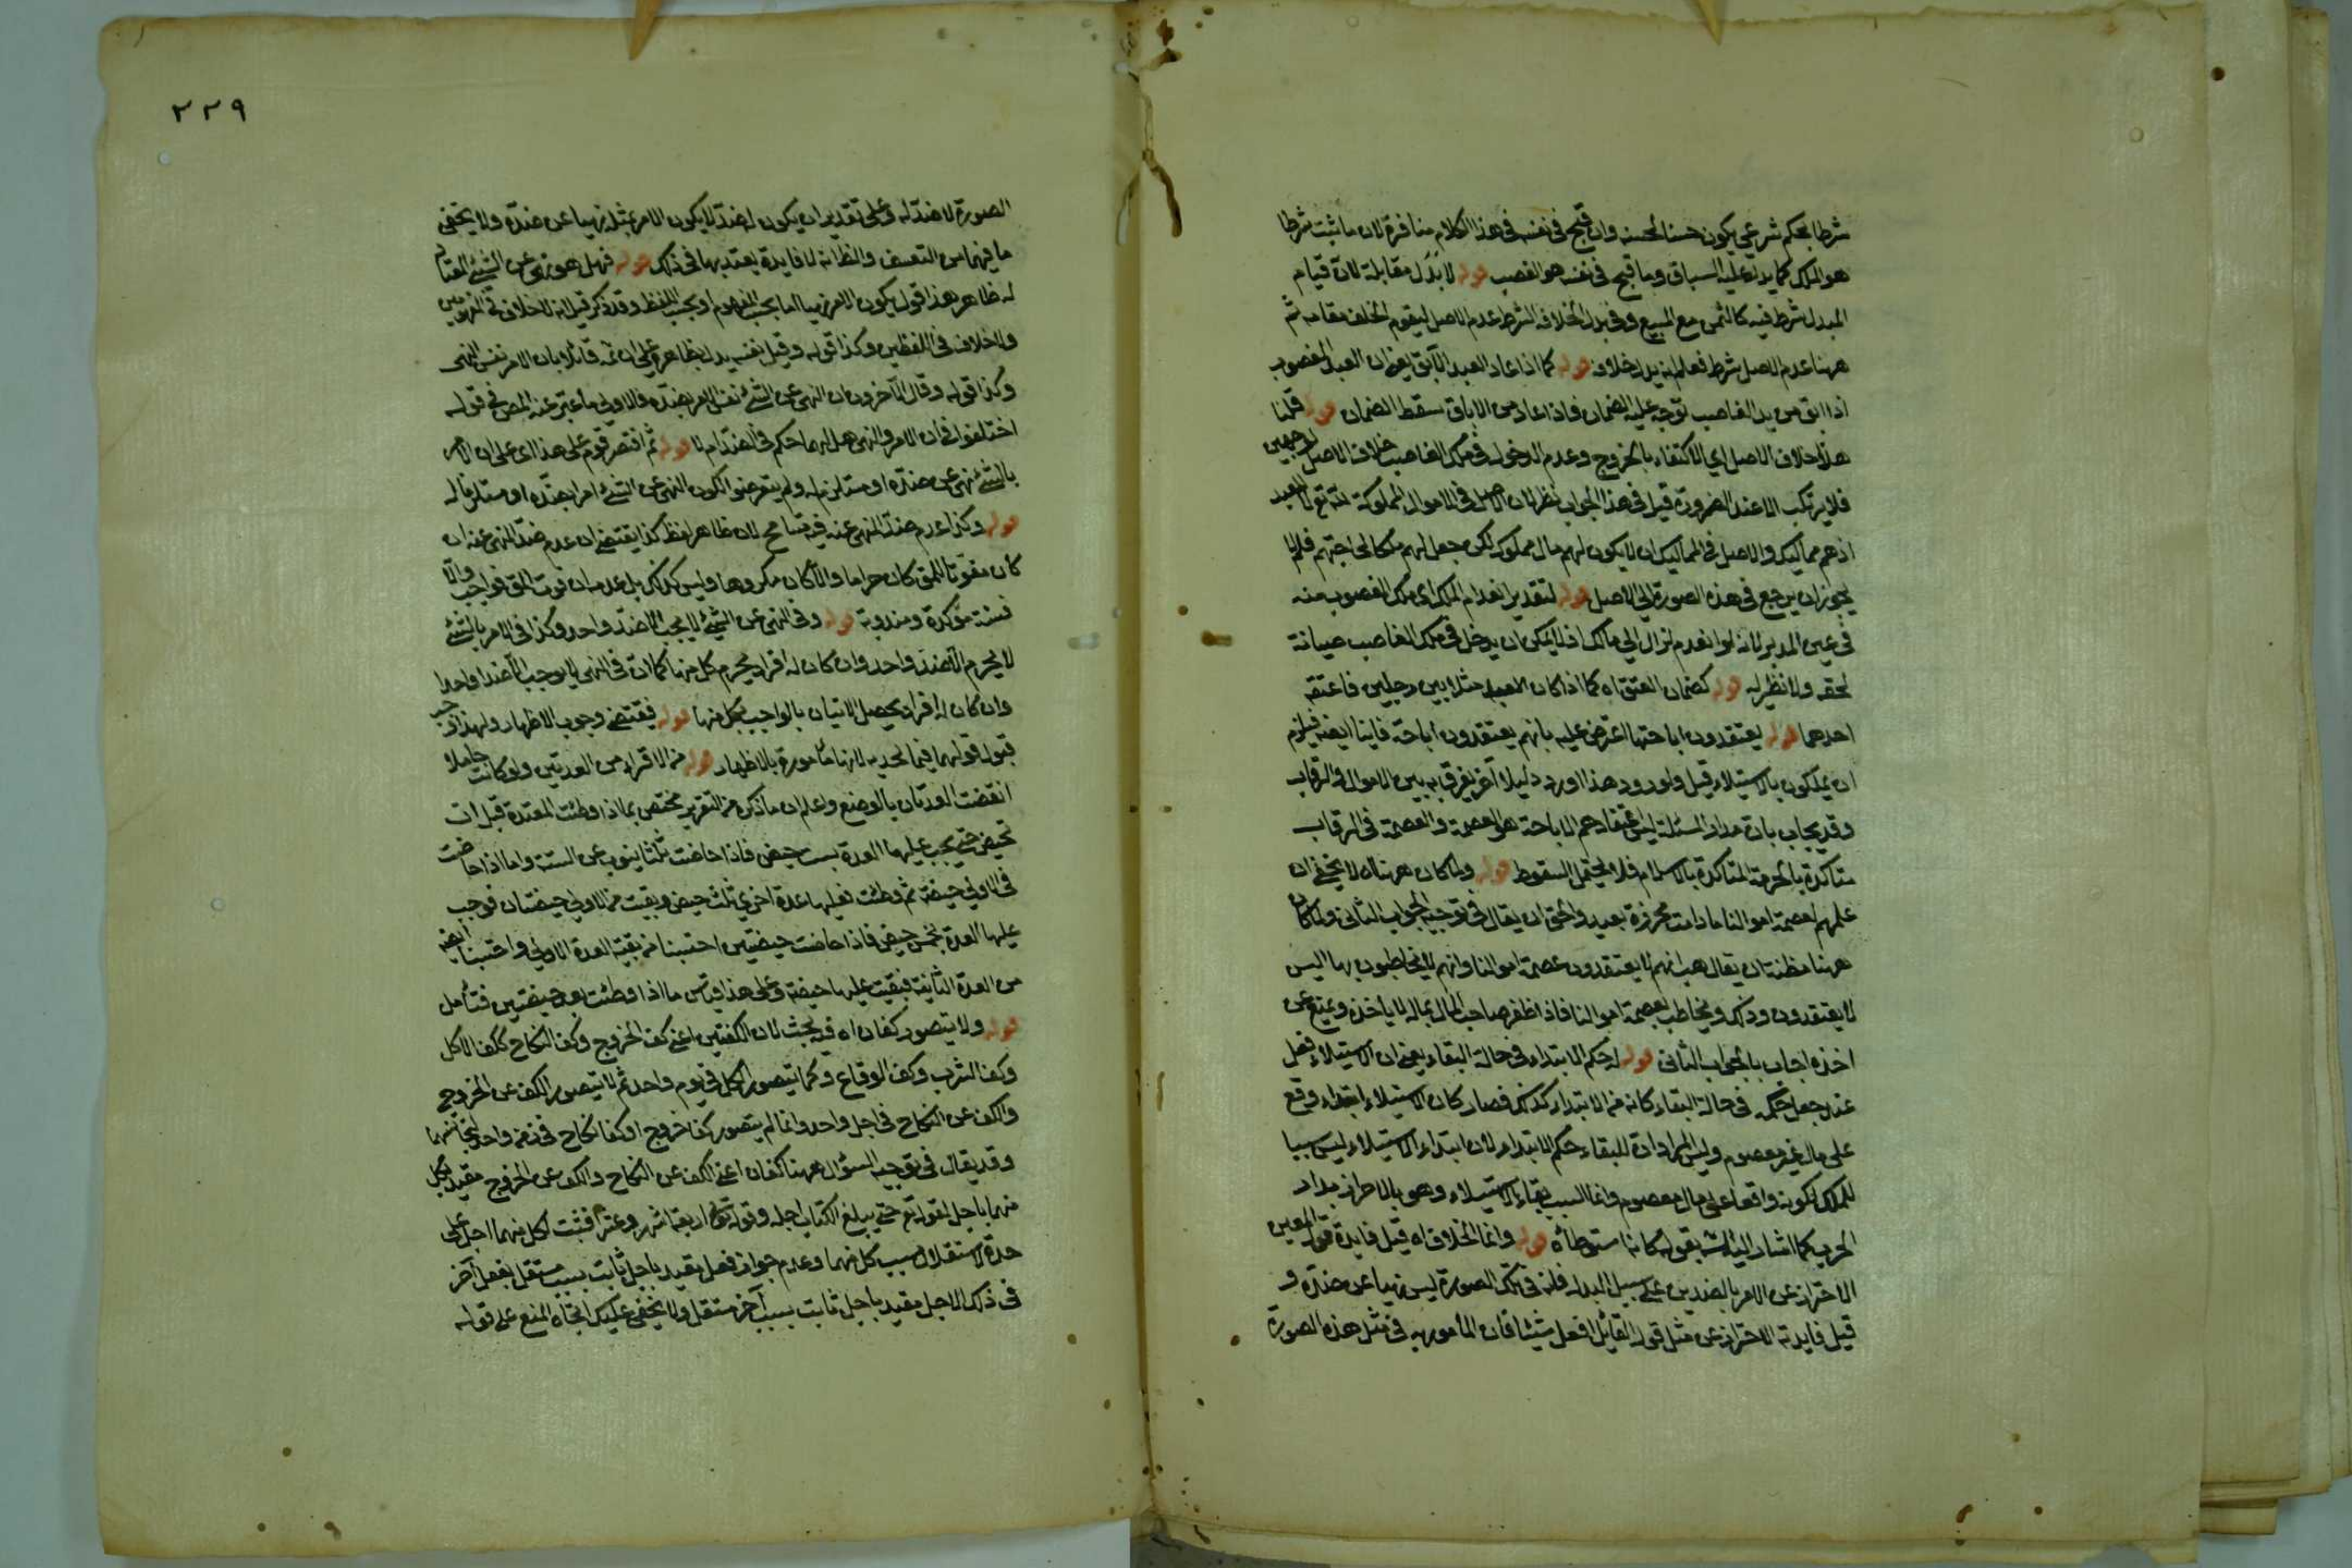 شرطا بحكم شرعي يكون حسنا لحسنه وان قبح في نفسه في هذا الكلام منافرة لان ما ثبت شرطا
هو الملك كما يدل عليه السباق وما قبح في نفسه هو الغصب قوله لا بدل مقابلة لان قيام
المبدل شرط فيه كالثمن مع المبيع وفي بدل الخلافة الشرط عدم الاصل ليقوم الخلف مقامه ثم
ههنا عدم الاصل شرط فعلم انه بدل خلافة قوله كما اذا عاد العبد الآبق يعني ان العبد المغصوب
اذا ابق من يد الغاصب توجه عليه الضمان فاذا عاد من الاباق سقط الضمان قوله قلنا
هذا خلاف الاصل اي الاكتفاء بالخروج وعدم الدخول في ملك الغاصب خلاف الاصل لوجهين
فلا يرتكب الا عند الضرورة قيل في هذا الجواب نظر لان الاصل في الاموال المملوكة لله تع العبيد
اذ هم مماليك والاصل في المماليك ان لا يكون لهم مال مملوك لكن جعل لهم ملكا لحاجتهم فلم لا
يجوز ان يرجع في هذه الصورة الى الاصل قوله لتقدير انعدام الملك اي ملك المغصوب منه
في عين المدبر لانه لو انعدم لزال الى مالك اذ لا يمكن ان يدخل في ملك الغاصب صيانة
لحقه ولا نظير له قوله كضمان العتق اه كما اذا كان العبد مثلا بين رجلين فاعتقه
احدهما قوله يعتقدون اباحتها اعترض عليه بانهم يعتقدون اباحة رقابنا ايضا فيلزم
ان يملكون بالاستيلاء قيل ولورود هذا اورد دليلا آخر يفرق به بين الاموال والرقاب
وقد يجاب بان مدار المسئلة ليس اعتقادهم الاباحة هو العصمة والعصمة في الرقاب
متاكدة بالحرمة المتاكدة بالاسلام فلا يحتمل السقوط قوله ولما كان ههنا اه لا يخفى ان
علمهم عصمة اموالنا ما دامت محرزة بعيد والحق ان يقال في توجيه الجواب الثاني ولما كان
ههنا مظنة ان يقال هب انهم لا يعتقدون عصمة اموالنا وانهم لا يخاطبون بها اليس
لا يعتقدون وذلك ويخاطب بعصمة اموالنا فاذا ظفر صاحب المال بماله لا ياخذه ويمنع عن
اخذه اجاب بالجواب الثاني قوله له حكم الابتداء في حالة البقاء يعني ان الاستيلاء فعل
عند جعل حكمه في حالة البقاء كانه في الابتداء كذلك فصار كان الاستيلاء ابتداء وقع
على مال غير معصوم وليس المراد ان للبقاء حكم الابتداء لان ابتداء الاستيلاء ليس سببا
للملك لكونه واقعا على مال معصوم وانما السبب بقاء الاستيلاء وهو بالاحراز بدار
الحرب كما اشار اليه الشه بقوله كانما استوطأه قوله وانما الخلاف اه قيل فايدة قوله المعين
الاحتراز عن الامر بالضدين على سبيل البدل فانه في تلك الصورة ليس نهيا عن ضده و
قيل فايدته الاحتراز عن مثل قول القائل افعل شيئا فان المأمور به في مثل هذه الصورة
٢٢٩
الصورة لا ضد له وعلى تقدير ان يكون له ضد لا يكون الامر بمثله نهيا عن ضده ولا يخفى
ما فيهما من التعسف والظ انه لا فايدة يعتد بها في ذلك قوله فهل هو نهي عن الشيئ المقابل
له ظاهر هذا قول بكون الامر نهيا اما بحسب المفهوم او بحسب اللفظ وقد ذكر قيل انه لا خلاف في المفهومين
ولا خلاف في اللفظين وكذا قوله وقيل بنفسه يدل بظاهره على ان ثمه قائلا بان الامر نفس النهي
وكذا قوله وقال الآخرون ان النهي عن الشيئ نفس الامر بضده فالاولى ما عبر عنه المص في قوله
اختلفوا في ان الامر والنهي هل لهما حكم في الضد ام لا قوله ثم اقتصر قوم على هذا اي على ان الامر
بالشيئ نهي عن ضده او مستلزم له ولم يتعرضوا لكون النهي عن الشيئ امرا بضده او مستلزما له
قوله وكذا عدم ضد المنهي عنه فيه تسامح لان ظاهر لفظ كذا يقتضي ان عدم ضد المنهي عنه ان
كان مفوتا للمق كان حراما والا كان مكروها وليس كذلك بل عدمه ان فوت المق فواجب والا
فسنة مؤكدة ومندوبة قوله وفي النهي عن الشيئ لا يجب الا ضد واحد وكذا في الامر بالشيئ
لا يحرم الا ضد واحد وان كان له افراد يحرم كل منها كما ان في النهي لا يوجب الا ضدا واحدا
وان كان له افراد يحصل الاتيان بالواجب بكل منها قوله فيقتضي وجوب الاظهار ولهذا وجب
قبول قولهما فيما تخبر به لانها مأمورة بالاظهار قوله في الاقراء من العدتين ولو كانت حاملا
انقضت العدتان بالوضع واعلم ان ما ذكره في التقرير مختص بما اذا وطئت المعتدة قبل ان
تحيض حتى يجب عليها العدة بست حيض فاذا حاضت ثلثا ينوب عن الستة واما اذا حاضت
في الاولى حيضة ثم وطئت فعليها عدة اخرى ثلث حيض وبقيت من الاولى حيضتان فوجب
عليها العدة بخمس حيض فاذا حاضت حيضتين احتسبتا من بقية العدة الاولى واحتسبتا ايضا
من العدة الثانية فبقيت عليها حيضة وعلى هذا قياس ما اذا وطئت بعد حيضتين فتأمل
قوله ولا يتصور كفان اه فيه بحث لان الكفتين اعني كف الخروج وكف النكاح ككف الاكل
وكف الشرب وكف الوقاع وكما يتصور الكل في يوم واحد ثم لا يتصور الكف عن الخروج
والكف عن النكاح في اجل واحد وانما لم يتصور كفا خروج او كفا نكاح في زمن واحد لتجانسهما
وقد يقال في توجيه السؤال ههنا كفان اعني الكف عن النكاح والكف عن الخروج مقيد كل
منهما باجل لقوله تع حتى يبلغ الكتاب اجله وقوله تع اربعة اشهر وعشرا فثبت لكل منهما اجل على
حدة لاستقلال سبب كل منهما وعدم جواز فعل مقيد باجل ثابت بسبب مستقل بفعل آخر
في ذلك الاجل مقيد باجل ثابت بسبب آخر مستقل ولا يخفى عليك اتجاه المنع على قوله